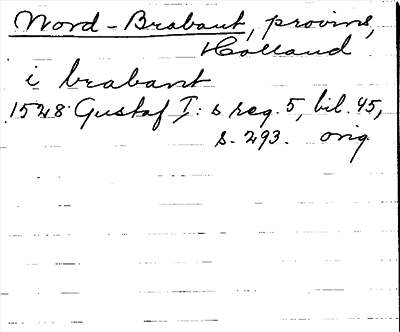 Nord-Brabant, provins,
Holland
i brabant
1528 Gustaf I: s reg. 5, bil. 45,
s. 293. orig